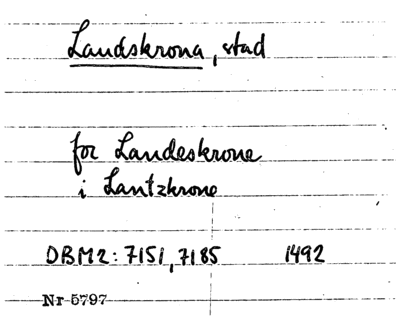 Landskrona, stad
for Landeskrone
i Lantzkrone
DBM2: 7151, 7185 1492
Nr 5797